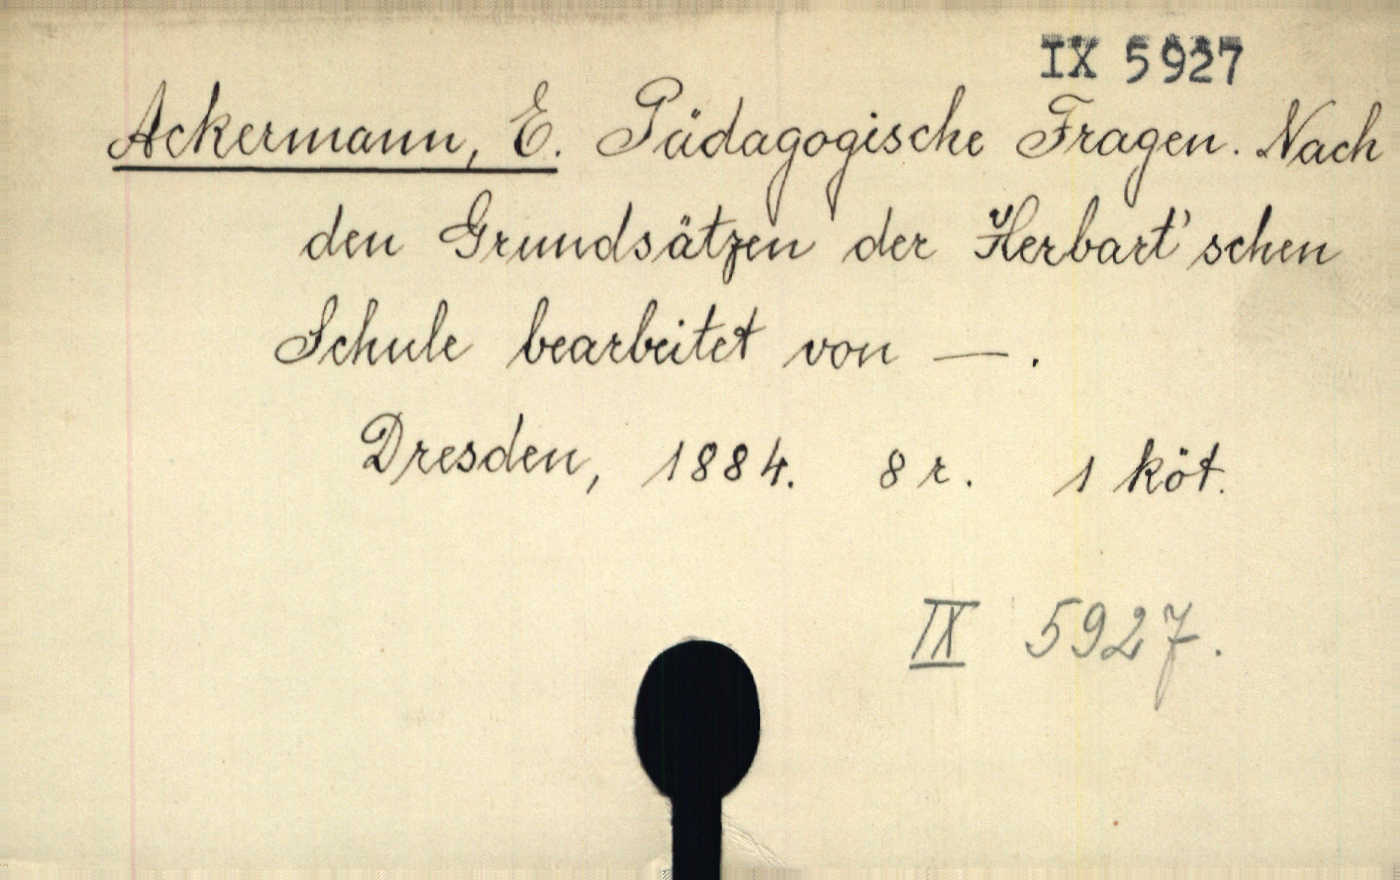 IX 5927
Ackermann, E. Pädagogische Fragen. Nach
den Grundsätzen der Herbart'schen
Schule bearbeitet von —.
Dresden, 1884. 8 r. 1 köt.
IX 5927.